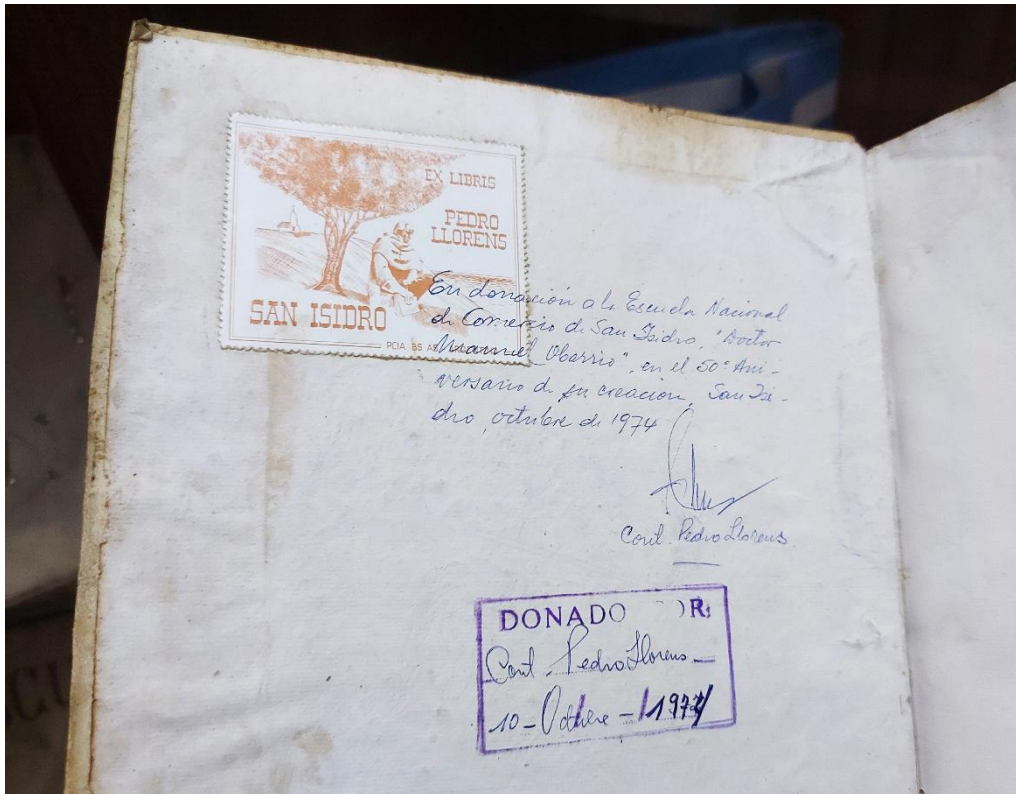 EX LIBRIS
PEDRO
LLORENS
SAN ISIDRO
PCIA. BS. AS.
En donación a la Escuela Nacional
de Comercio de San Isidro, "Doctor
Manuel Obarrio", en el 50° Ani-
versario de su creación, San Isi-
dro, octubre de 1974
Cont. Pedro Llorens
DONADO OR:
Cont. Pedro Llorens
10 - Octubre - 1974